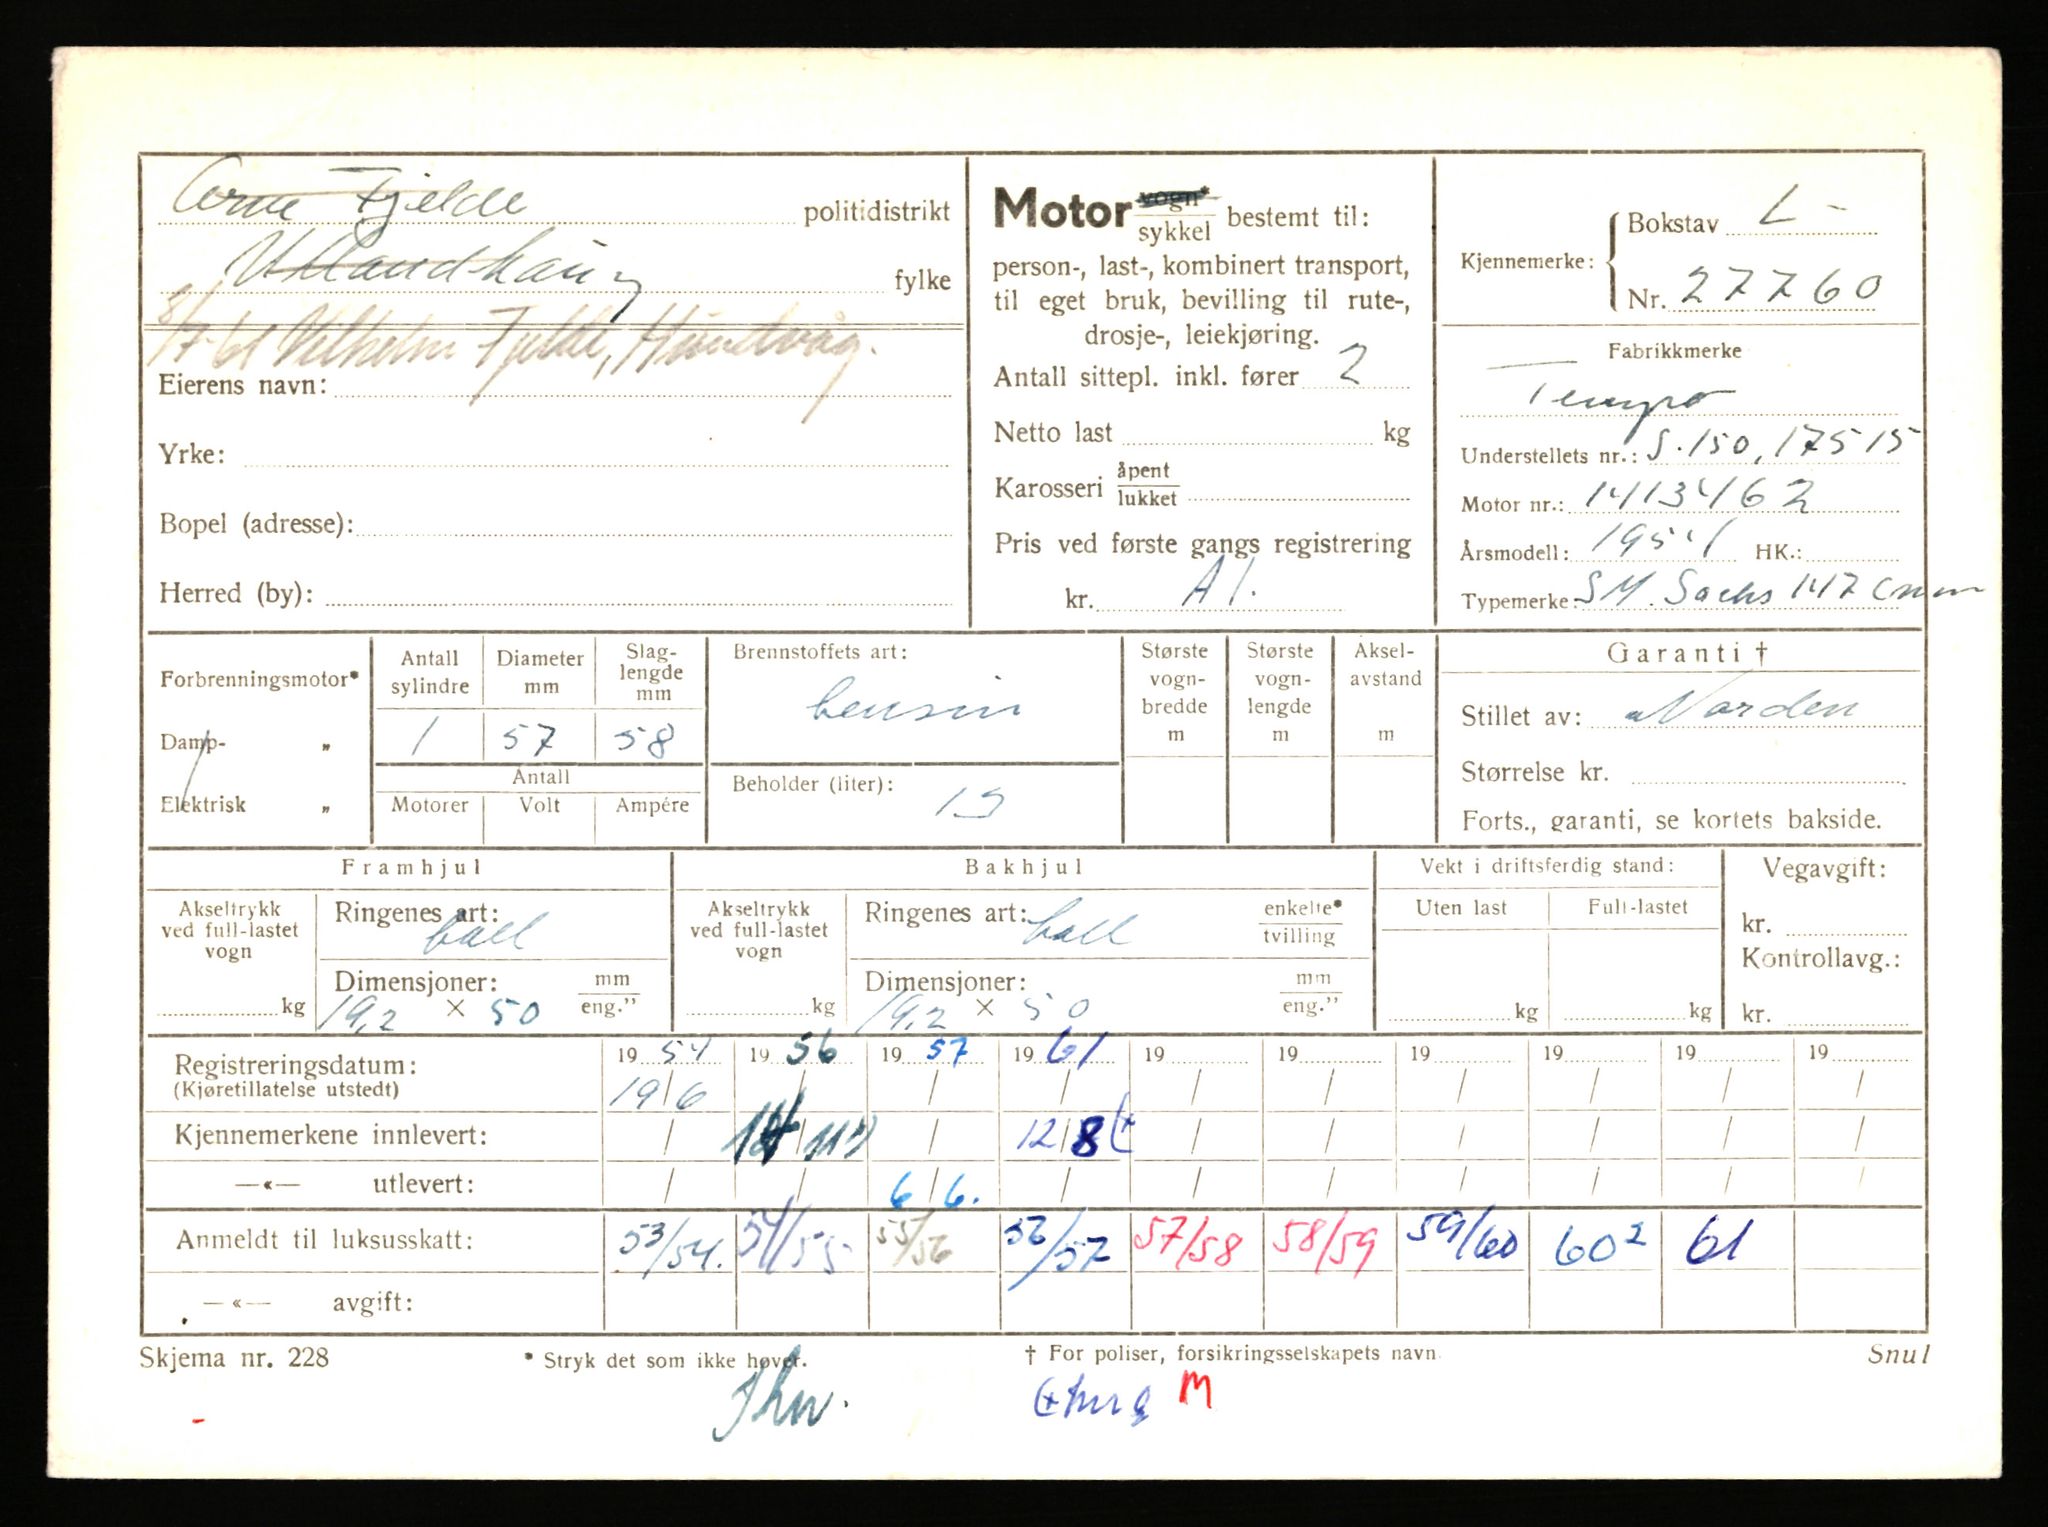 Arne Fjelde politidistrikt
Ullandhaug fylke
8/7-61 Vilhelm Fjelde, Hundvåg.
Eierens navn:
Yrke:
Bopel (adresse):
Herred (by):
Motor vogn* / sykkel bestemt til:
person-, last-, kombinert transport,
til eget bruk, bevilling til rute-,
drosje-, leiekjøring.
Antall sittepl. inkl. fører 2
Netto last kg
Karosseri åpent / lukket
Pris ved første gangs registrering
kr. A1.
Kjennemerke: Bokstav L-
Nr. 27760
Fabrikkmerke
Tempo
Understellets nr.: S.150, 17515
Motor nr.: 1413462
Årsmodell: 1954 HK.:
Typemerke: SM. Sachs 147 ccm
Forbrenningsmotor*
Damp- „
Elektrisk „
Antall sylindre Diameter mm Slag-lengde mm
1 57 58
Antall
Motorer Volt Ampére
Brennstoffets art:
bensin
Beholder (liter):
15
Største vogn-bredde m
Største vogn-lengde m
Aksel-avstand m
Garanti †
Stillet av: Norden
Størrelse kr.
Forts., garanti, se kortets bakside.
Framhjul
Akseltrykk ved full-lastet vogn
kg
Ringenes art:
ball
Dimensjoner: mm / eng."
19,2 × 50
Bakhjul
Akseltrykk ved full-lastet vogn
kg
Ringenes art: enkelte* / tvilling
ball
Dimensjoner: mm / eng."
19,2 × 50
Vekt i driftsferdig stand:
Uten last Full-lastet
kg kg
Vegavgift:
kr.
Kontrollavg.:
kr.
Registreringsdatum: 1954 1956 1957 1961 19 19 19 19 19 19
(Kjøretillatelse utstedt) 19/6 / / / / / / / / /
Kjennemerkene innlevert: / / / 12/8 / / / / / /
—«— utlevert: / / 6/6. / / / / / / /
Anmeldt til luksusskatt: 53/54. 54/55 55/56 56/57 57/58 58/59 59/60 60² 61
—«— avgift:
Skjema nr. 228
* Stryk det som ikke høver.
† For poliser, forsikringsselskapets navn
Snul
M